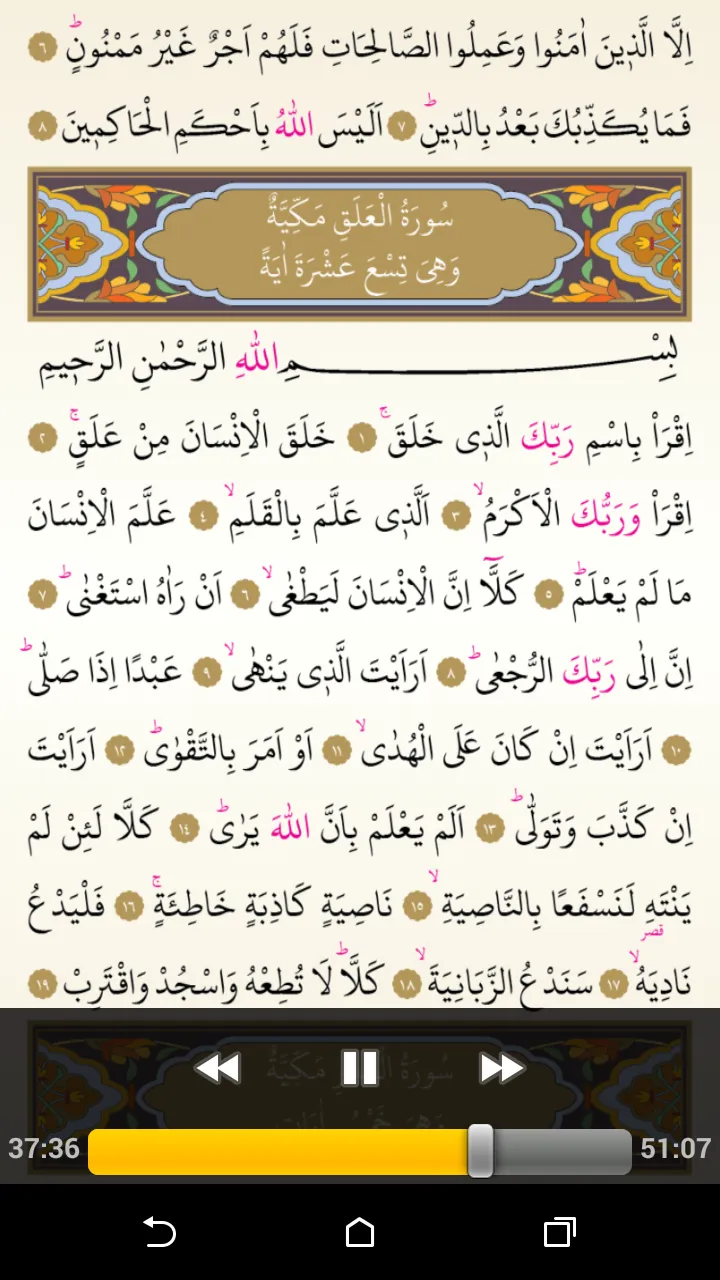 اِلَّا الَّذ۪ينَ اٰمَنُوا وَعَمِلُوا الصَّالِحَاتِ فَلَهُمْ اَجْرٌ غَيْرُ مَمْنُونٍۜ ٦
فَمَا يُكَذِّبُكَ بَعْدُ بِالدّ۪ينِۜ ٧ اَلَيْسَ اللّٰهُ بِاَحْكَمِ الْحَاكِم۪ينَ ٨
سُورَةُ الْعَلَقِ مَكِّيَّةٌ
وَهِىَ تِسْعَ عَشْرَةَ اٰيَةً
بِسْــــــــمِ اللّٰهِ الرَّحْمٰنِ الرَّح۪يمِ
اِقْرَأْ بِاسْمِ رَبِّكَ الَّذ۪ى خَلَقَۚ ١ خَلَقَ الْاِنْسَانَ مِنْ عَلَقٍۚ ٢
اِقْرَأْ وَرَبُّكَ الْاَكْرَمُۙ ٣ اَلَّذ۪ى عَلَّمَ بِالْقَلَمِۙ ٤ عَلَّمَ الْاِنْسَانَ
مَا لَمْ يَعْلَمْۜ ٥ كَلَّٓا اِنَّ الْاِنْسَانَ لَيَطْغٰىۙ ٦ اَنْ رَاٰهُ اسْتَغْنٰىۜ ٧
اِنَّ اِلٰى رَبِّكَ الرُّجْعٰىۜ ٨ اَرَاَيْتَ الَّذ۪ى يَنْهٰىۙ ٩ عَبْدًا اِذَا صَلّٰىۜ
١٠ اَرَاَيْتَ اِنْ كَانَ عَلَى الْهُدٰىۙ ١١ اَوْ اَمَرَ بِالتَّقْوٰىۜ ١٢ اَرَاَيْتَ
اِنْ كَذَّبَ وَتَوَلّٰىۜ ١٣ اَلَمْ يَعْلَمْ بِاَنَّ اللّٰهَ يَرٰىۜ ١٤ كَلَّا لَئِنْ لَمْ
يَنْتَهِ لَنَسْفَعًا بِالنَّاصِيَةِۙ ١٥ نَاصِيَةٍ كَاذِبَةٍ خَاطِئَةٍۚ ١٦ فَلْيَدْعُ
قصر
نَادِيَهُۙ ١٧ سَنَدْعُ الزَّبَانِيَةَۙ ١٨ كَلَّاۜ لَا تُطِعْهُ وَاسْجُدْ وَاقْتَرِبْ ١٩
37:36 51:07